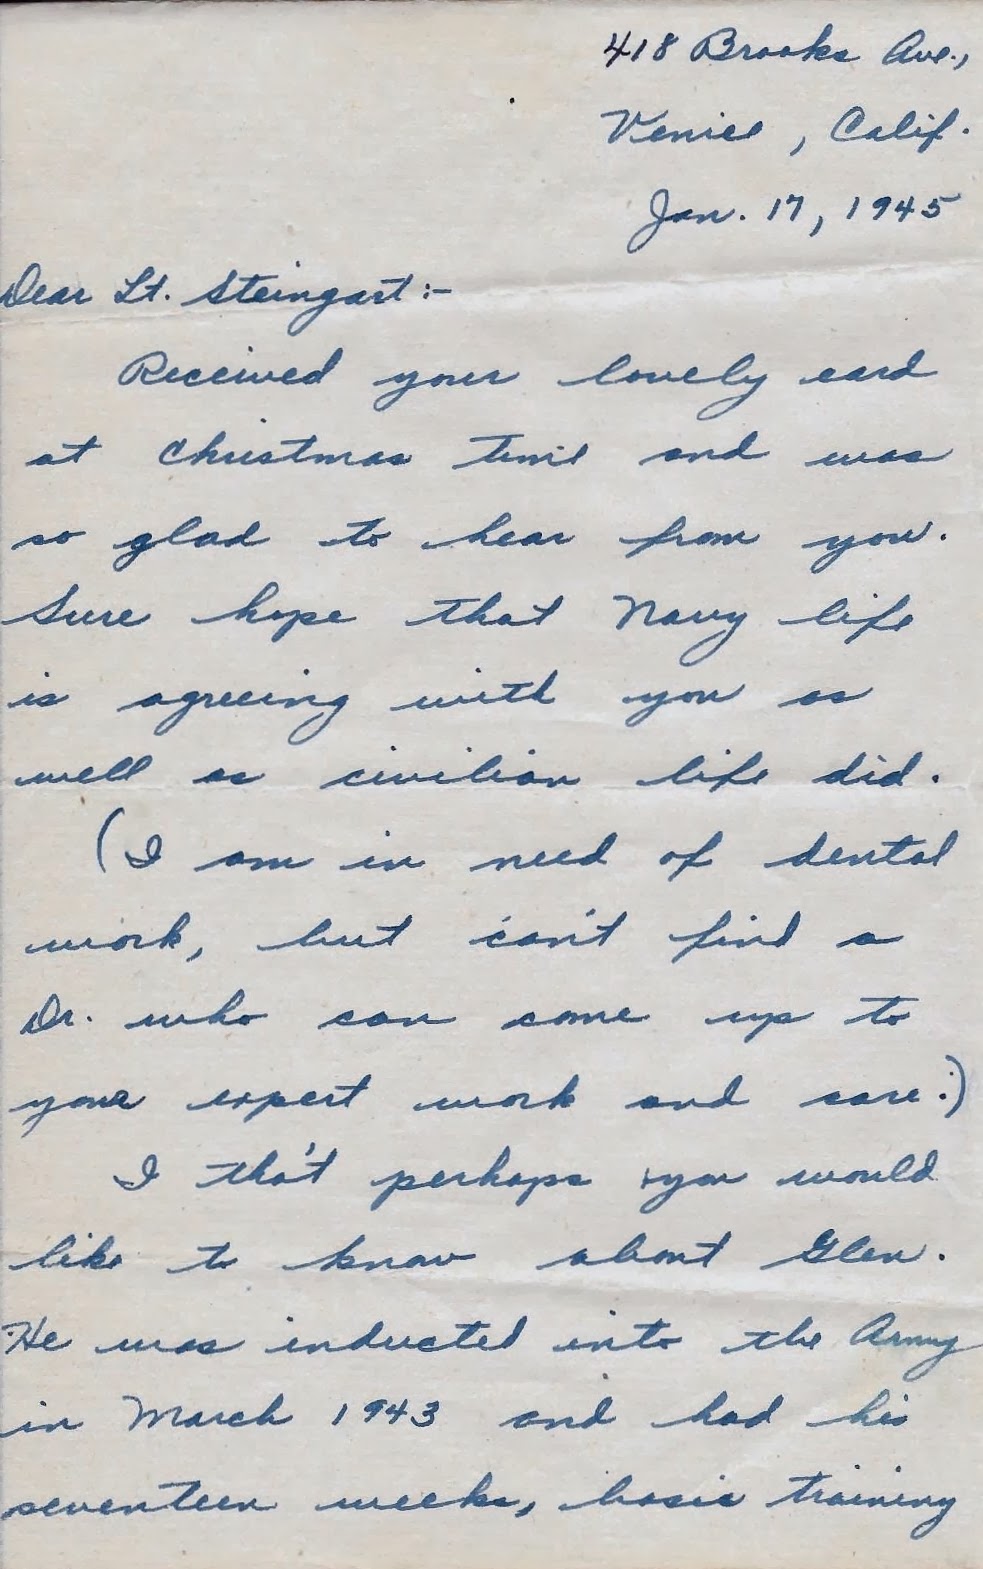 418 Brooks Ave.,
Venice, Calif.
Jan. 17, 1945
Dear Lt. Steingart:-
Received your lovely card
at Christmas time and was
so glad to hear from you.
Sure hope that Navy life
is agreeing with you as
well as civilian life did.
(I am in need of dental
work, but can't find a
Dr. who can come up to
your expert work and care.)
I tho't perhaps you would
like to know about Glen.
He was inducted into the Army
in March 1943 and had his
seventeen weeks, basic training